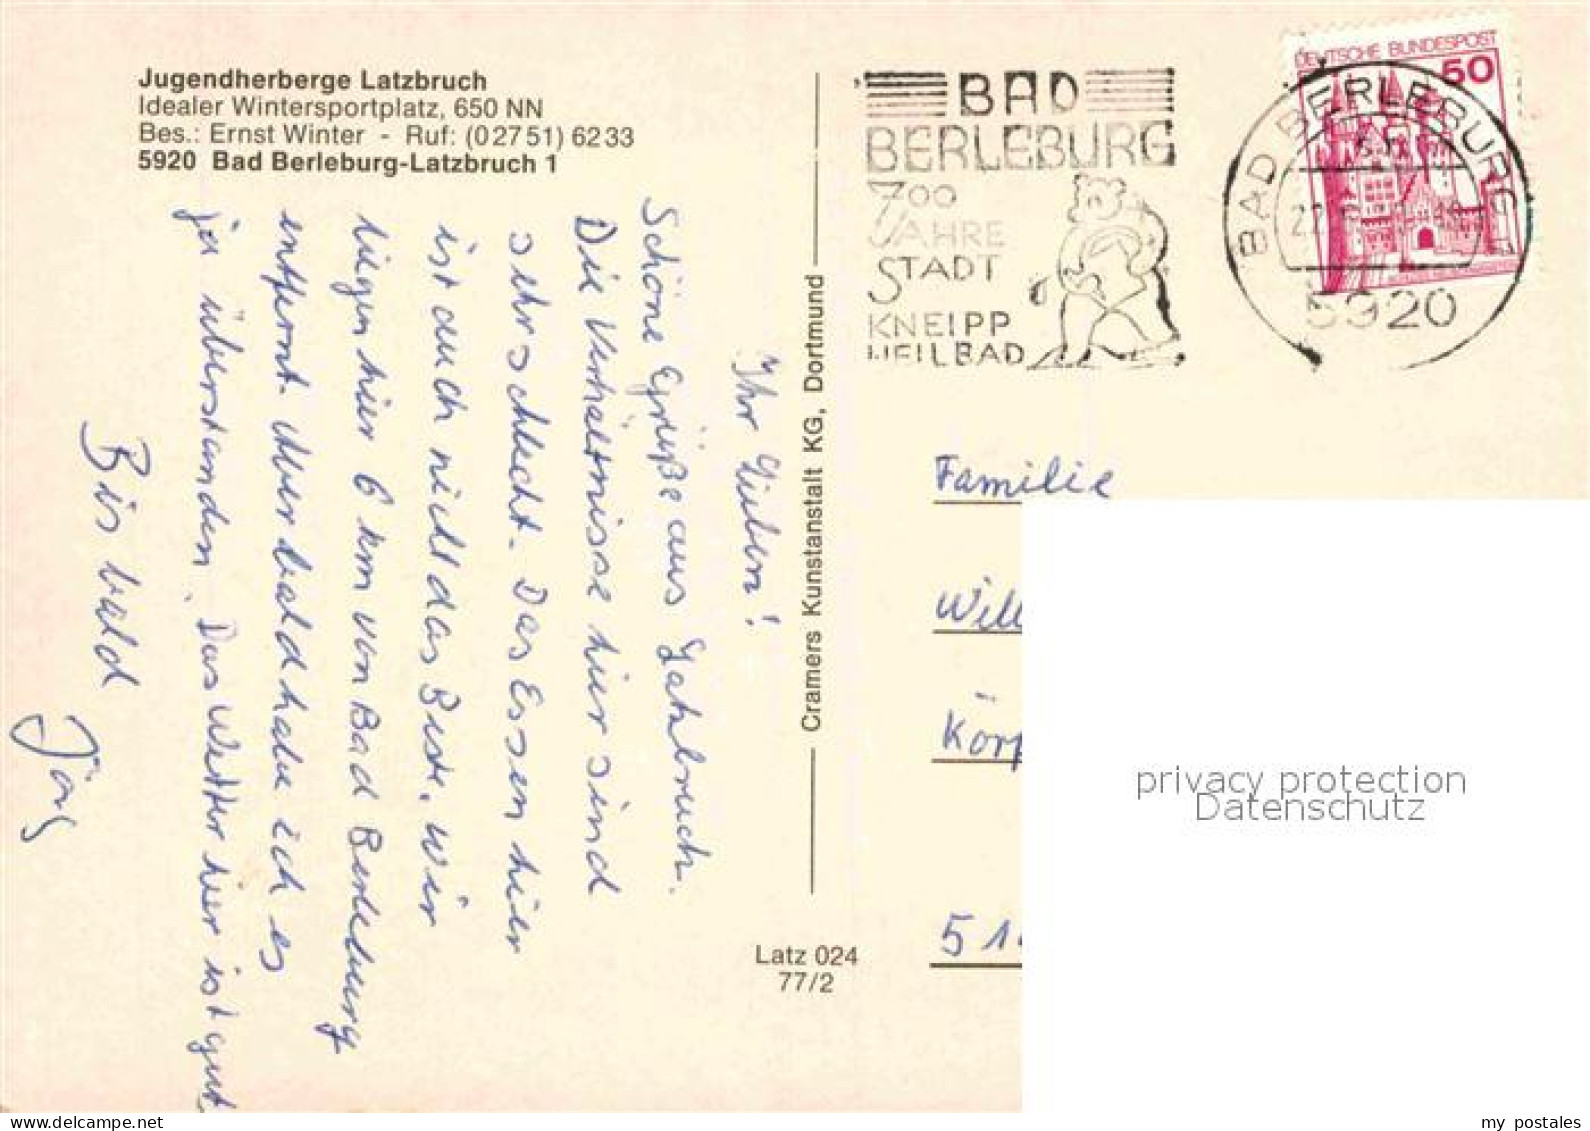 Jugendherberge Latzbruch
Idealer Wintersportplatz, 650 NN
Bes.: Ernst Winter - Ruf: (0 27 51) 62 33
5920 Bad Berleburg-Latzbruch 1
Ihr Lieben!
Schöne Grüße aus Latzbruch.
Die Verhältnisse hier sind
sehr schlecht. Das Essen hier
ist auch nicht das Beste. Wir
liegen hier 6 km von Bad Berleburg
entfernt. Aber bald habe ich es
ja überstanden. Das Wetter hier ist gut
Bis bald
Jörg
Cramers Kunstanstalt KG, Dortmund
Latz 024
77/2
BAD
BERLEBURG
700
JAHRE
STADT
KNEIPP
HEILBAD
DEUTSCHE BUNDESPOST
50
BAD BERLEBURG
5920
Familie
Will
Kör
51
privacy protection
Datenschutz
www.delcampe.net
my_postales